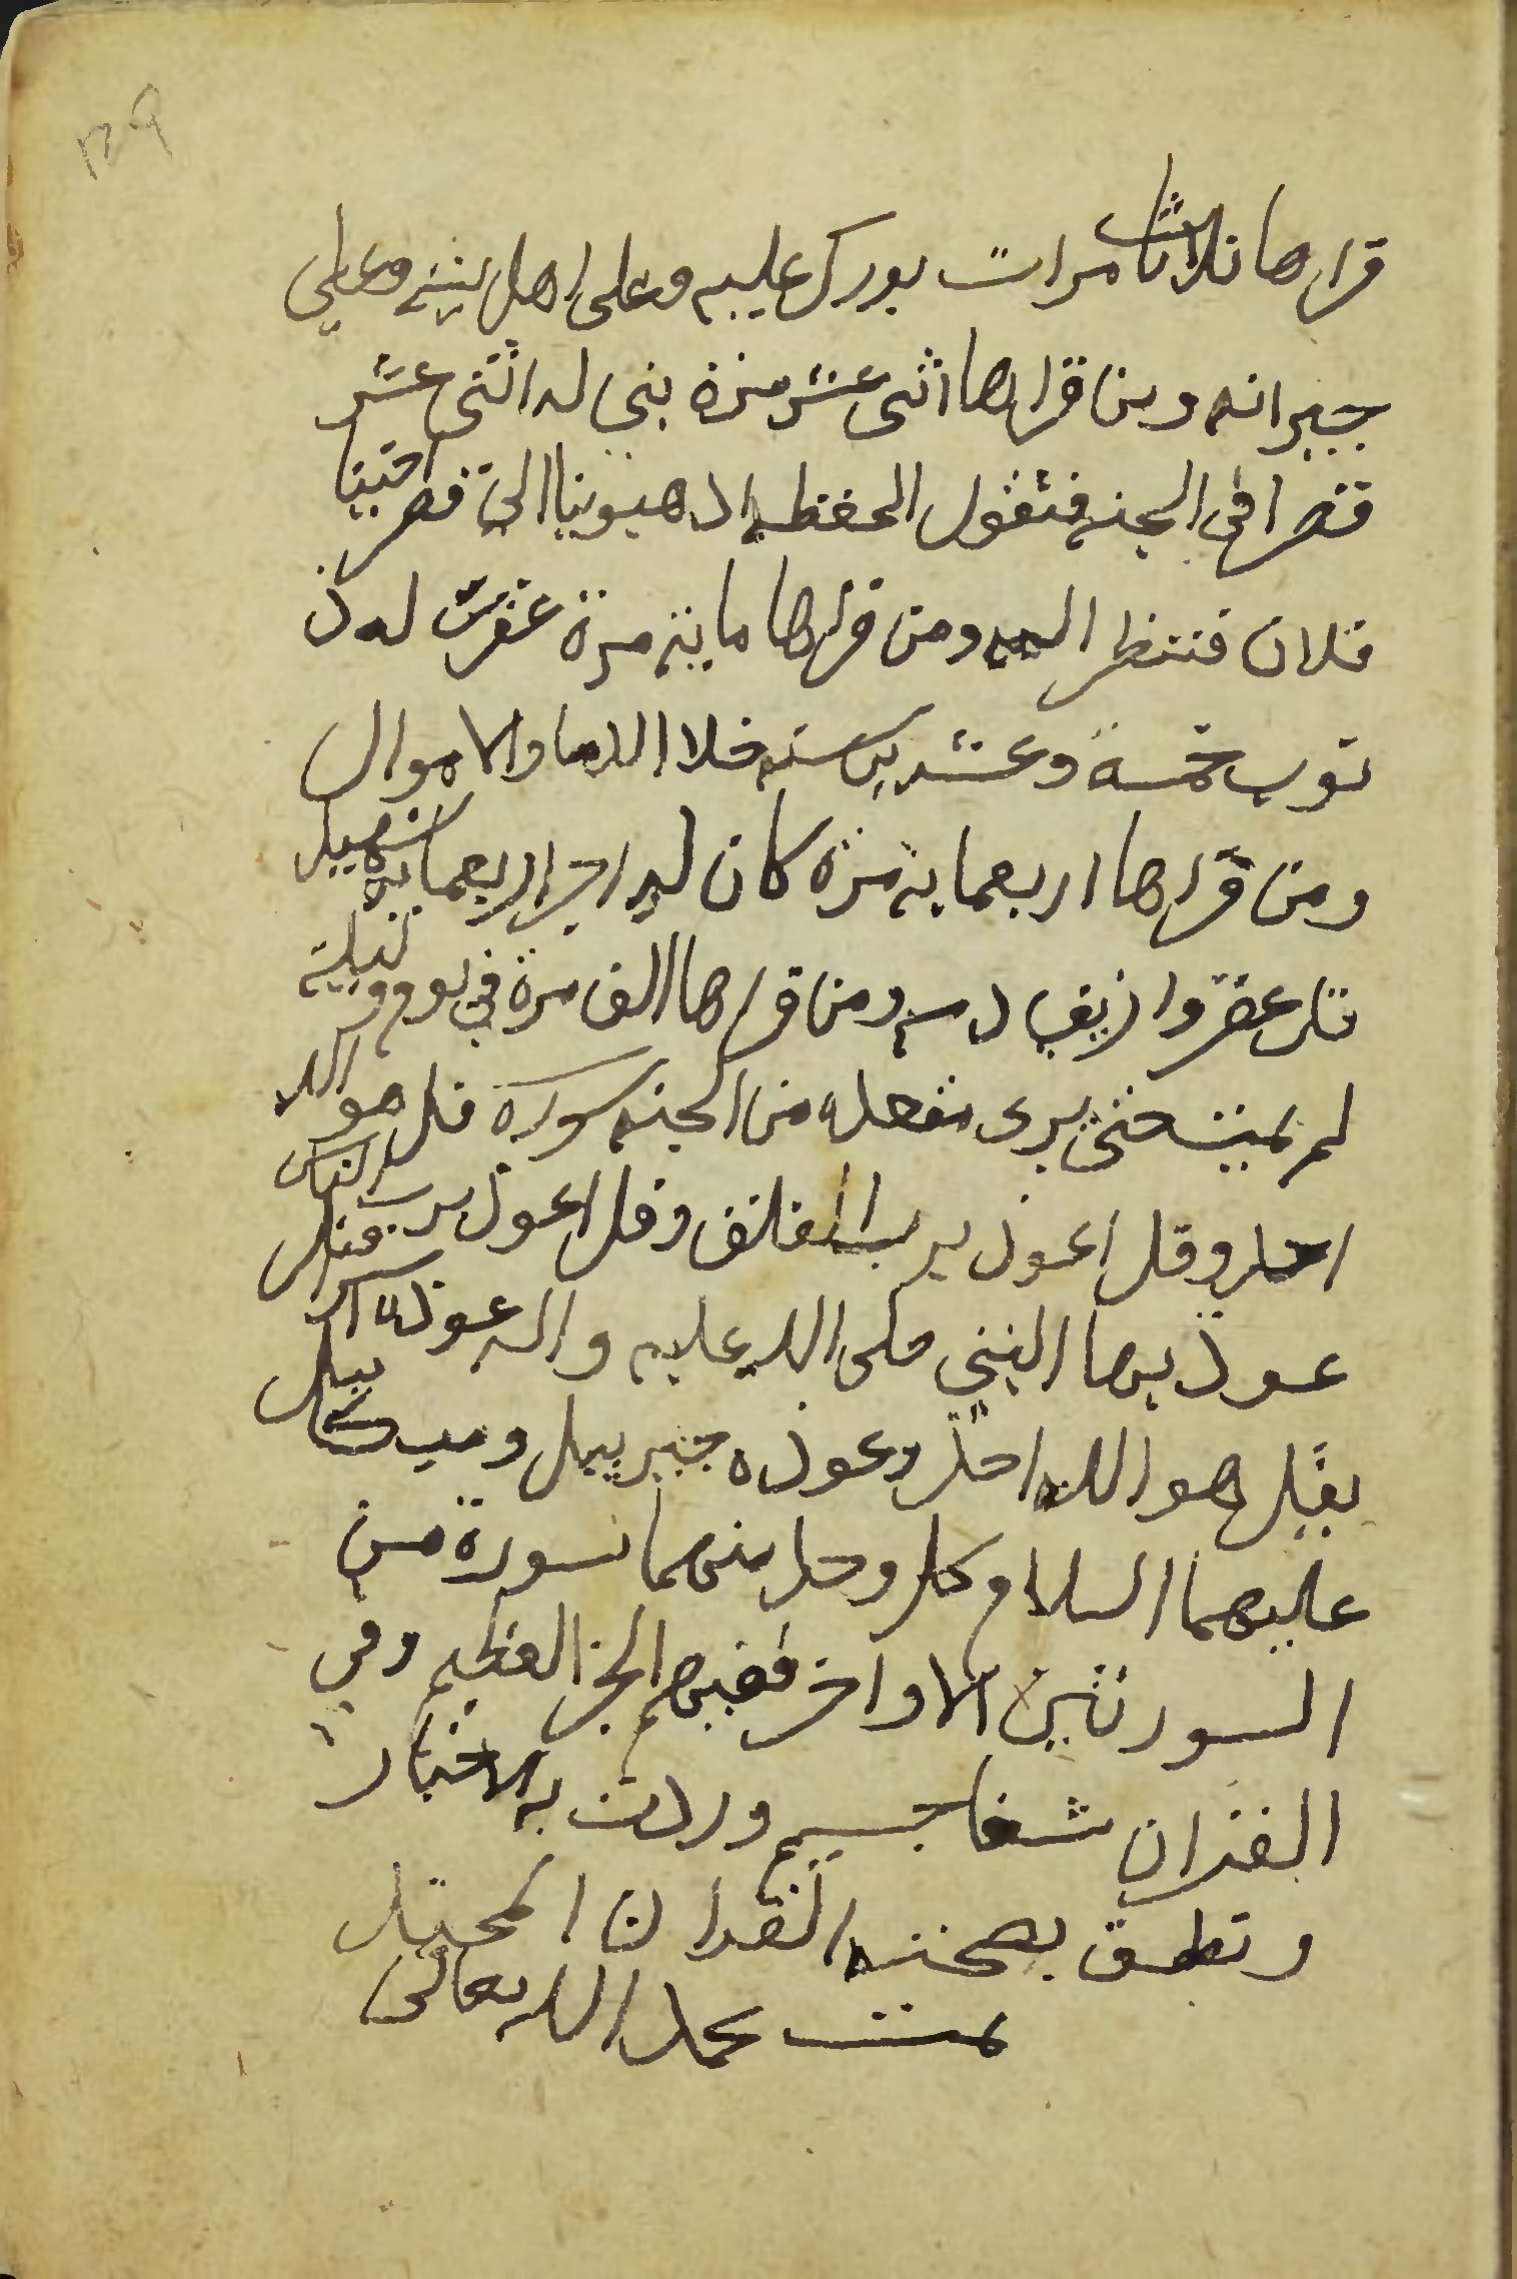 ١٢٩
قراها ثلاث مرات بورك عليه وعلى اهل بيته وعلى
جيرانه ومن قراها اثنى عشر مرة بنى له اثنى عشر
قصرا فى الجنه فتقول الحفظه اذهبوا بنا الى قصر اخينا
فلان فننظر اليه ومن قراها ماية مرة غفرت له ذ
نوب خمسة وعشرين سنه خلا الدما والاموال
ومن قراها اربعماية مرة كان له اجر اربعماية شهيد
كل عقروا زيق دمه ومن قراها الف مرة في يوم وليلة
لم يمت حتى يرى مقعده من الجنه سورة قل هو الله
احد وقل اعوذ برب الفلق وقل اعوذ برب الناس
عوذ بها النبي صلى الله عليه واله
بقل هو الله احد وعوذه جبرييل وميكاييل
عليهما السلام كل وحد منهما بسورة من
السورتين الاواخر ففيهم الحرز العظيم وفي
القران شفا جسيم وردت به الاخبار
ونطق به القران
تمت بحمد الله تعالى